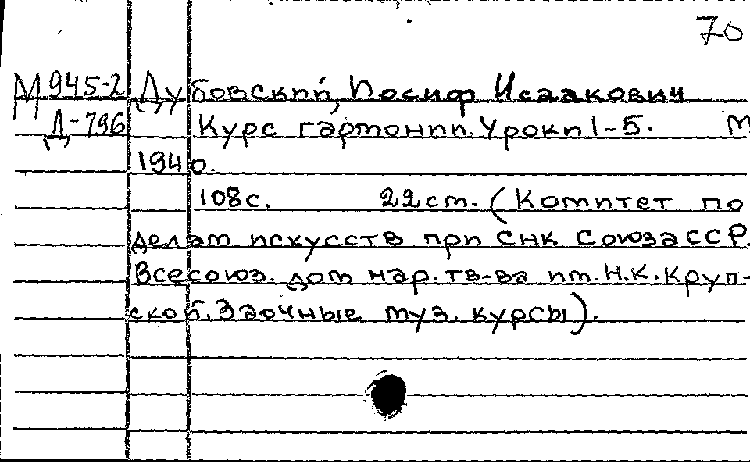 70
М 945-2 Дубовский, Иосиф Исаакович
Д-796 Курс гармонии. Уроки 1-5. М
1940.
108с. 22см. (Комитет по
делам искусств при СНК Союза ССР.
Всесоюз. дом нар. тв-ва им. Н.К. Круп-
ской. Заочные муз. курсы).